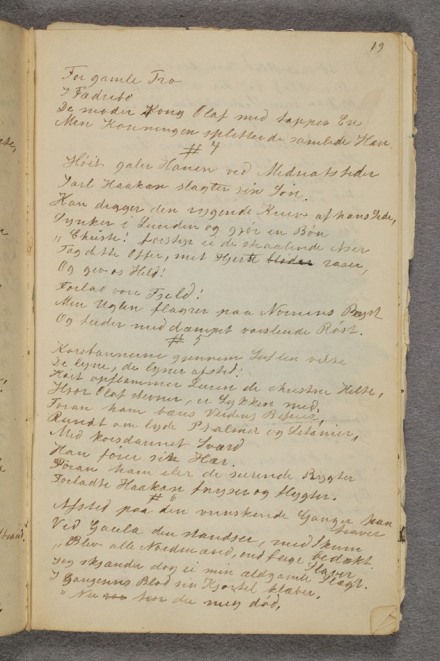 19
For gamle Tro
I Fædrebo
De møder Kong Olaf med tapper
Men Kongen splittede samlede Hær
# 4
Høit galer Hanen ved Midnatstider
Jarl Haakan slagter sin Søn.
Han drager den rygende Kniv af hans Side,
Synker i Lunden og gjør en Bøn
forstyr ei de skaalende Aser
Tag dette Offer, mit Hjerte bløder raser,
Og giv os Held!
Forlad vore Fjeld!
Men Uglen flagrer paa Nornens Bryst
Og tuder med dæmpet varslende Røst.
# 5
Korsbannerne gjennem Luften
De lyne, de lyner afsted!
Høit opflammer Luren de christne Helte,
Hvor Olaf stevner, er Lykken med.
Foran ham bæres
Rundt om lyde Psalmer og Litanier,
Med korsdannet Sværd
Han fører sin Hær.
Foran ham iler de Rygter
Forladte Haakan fnyser og flygter.
# 6
Afsted paa den vrinskende Ganger han traver
Ved Gaula den standser, med Skum bedækt.
"Blev alle Nordmænd end feige Slaver
Jeg skjænder dog ei min ældgamle Slægt.
I Gangerens Blod sin Kjortel klaber.
"Nu tror de mig død,